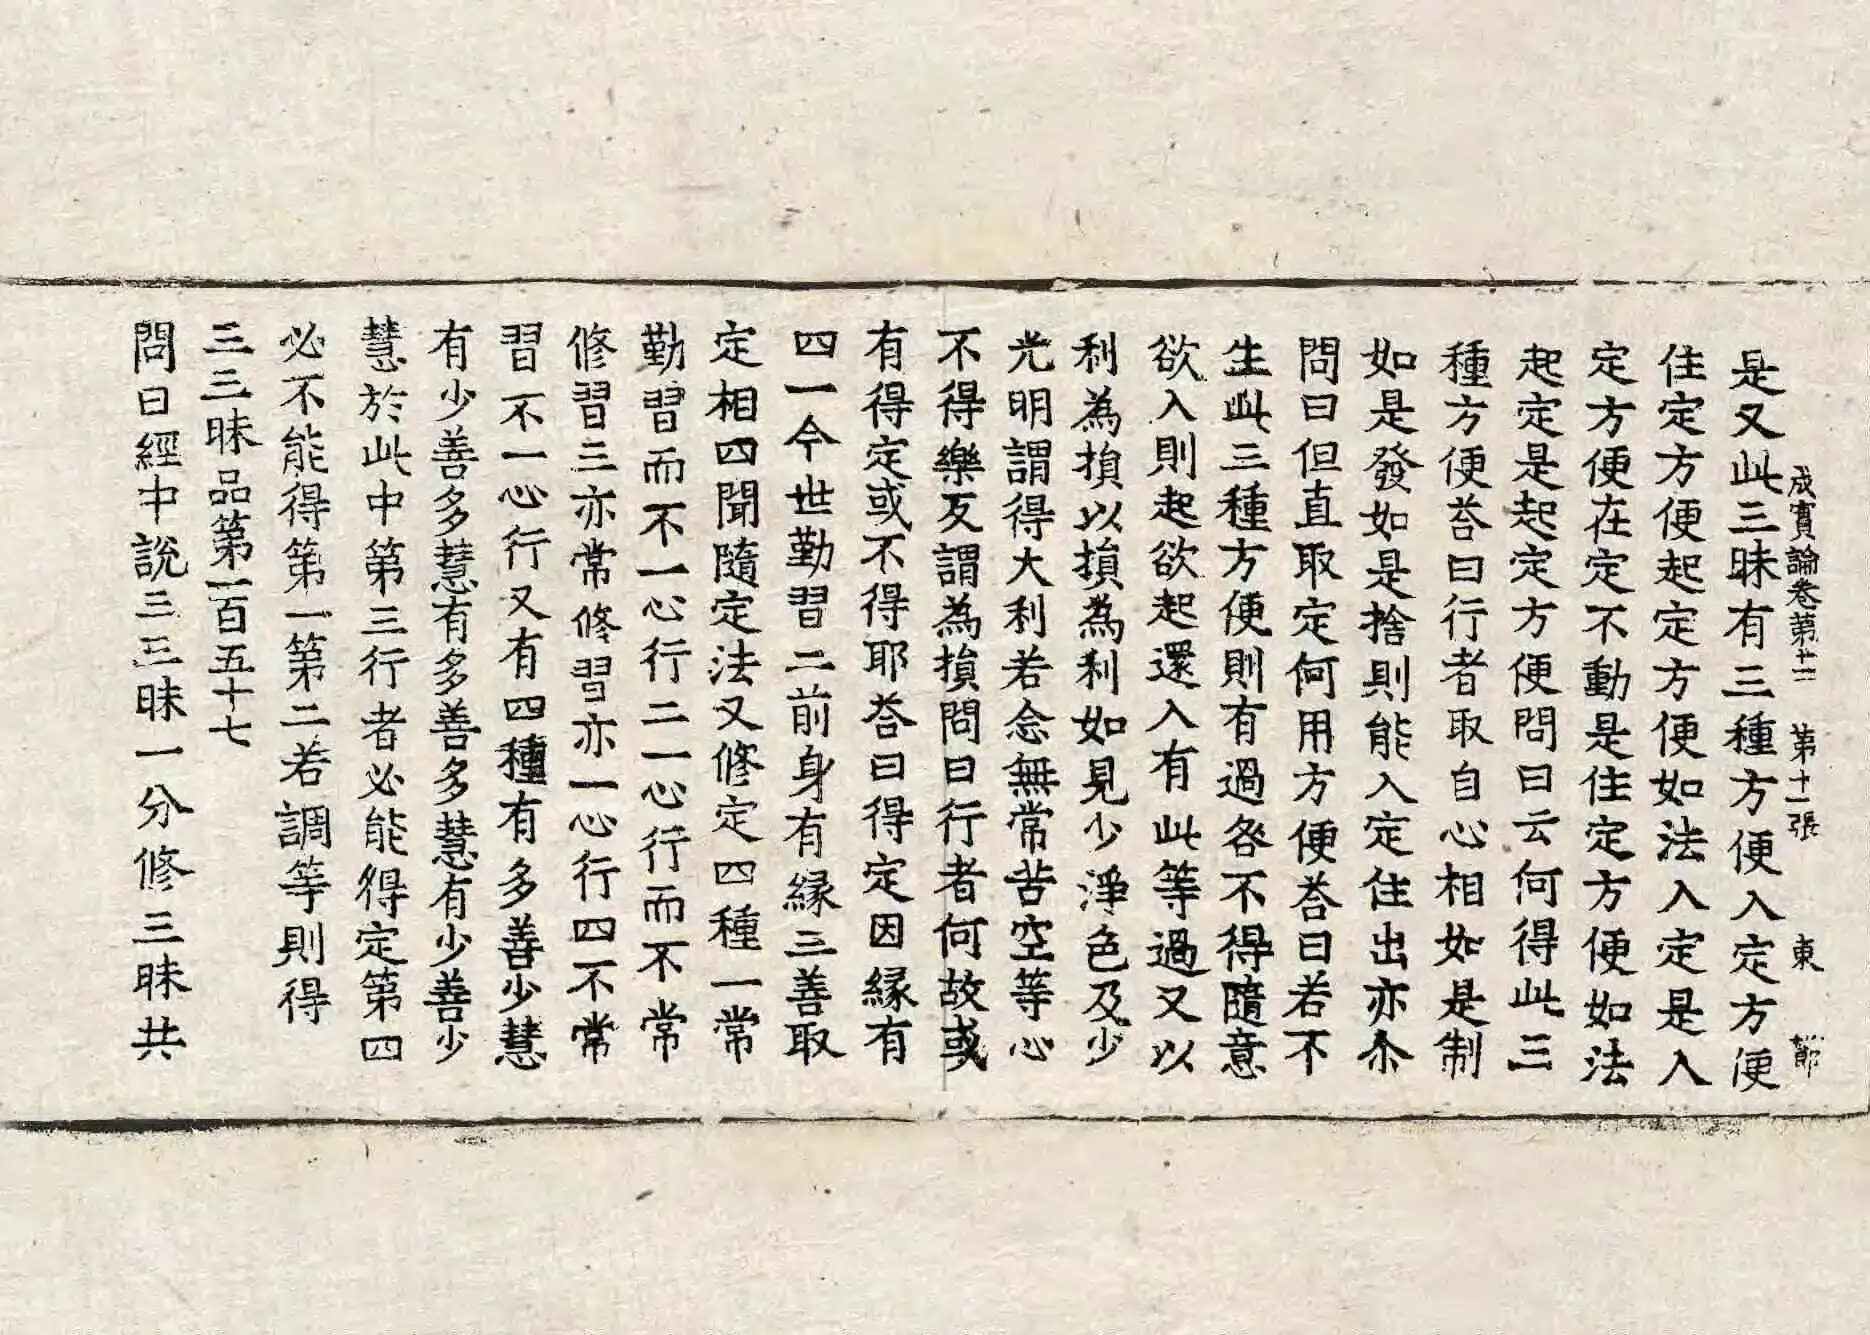 成實論卷第十二 第十一張 東
是又此三昧有三種方便入定方便
住定方便起定方便如法入定是入
定方便在定不動是住定方便如法
起定是起定方便問曰云何得此三
種方便荅曰行者取自心相如是制
如是發如是捨則能入定住出亦尒
問曰但直取定何用方便荅曰若不
生此三種方便則有過咎不得隨意
欲入則起欲起還入有此等過又以
利為損以損為利如見少淨色及少
光明謂得大利若念無常苦空等心
不得樂反謂為損問曰行者何故或
有得定或不得耶荅曰得定因縁有
四一今世勤習二前身有縁三善取
定相四聞隨定法又修定四種一常
勤習而不一心行二一心行而不常
修習三亦常修習亦一心行四不常
習不一心行又有四種有多善少慧
有少善多慧有多善多慧有少善少
慧於此中第三行者必能得定第四
必不能得第一第二若調等則得
三三昧品第一百五十七
問曰經中說三三昧一分修三昧共